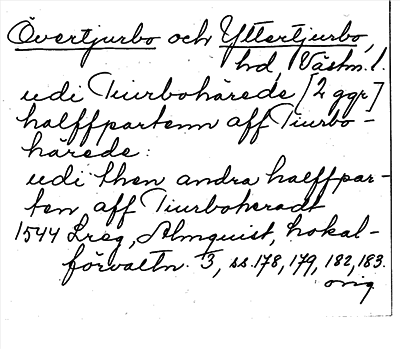 Övertjurbo och Yttertjurbo,
hd, Västm. l.
udi Tiurbohärede [2 ggr]
halffpartenn aff Tiurbo-
härede:
udi then andra halffpar-
ten aff Tiurboheradt
1544 Lreg, Almquist, Lokal-
förvaltn. 3, ss. 178, 179, 182, 183.
orig.